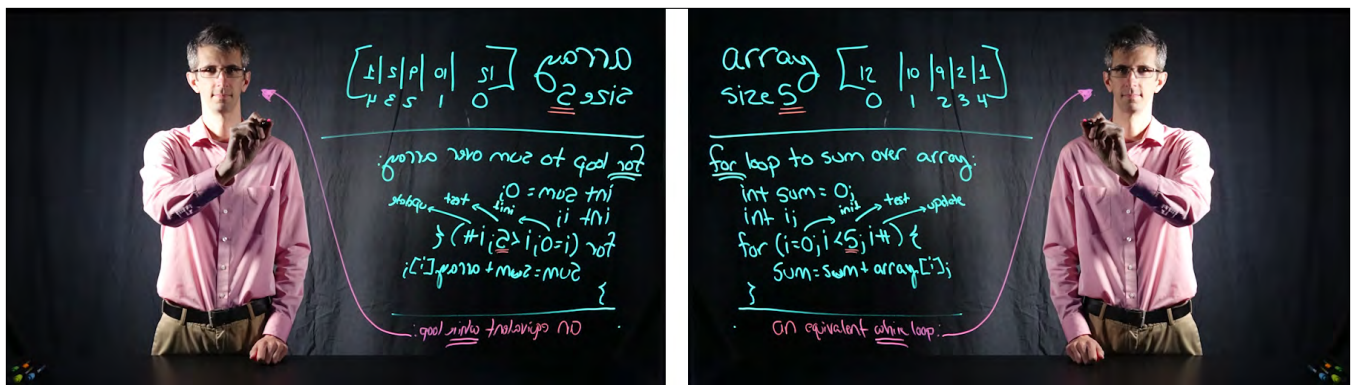 array [12 | 10 | 9 | 2 | 1]
size 5 0 1 2 3 4
for loop to sum over array:
int sum = 0;
int i;
init test update
for (i=0; i<5; i++) {
sum = sum + array[i];
}
an equivalent while loop:
array [12 | 10 | 9 | 2 | 1]
size 5 0 1 2 3 4
for loop to sum over array:
int sum = 0;
int i;
init test update
for (i=0; i<5; i++) {
sum = sum + array[i];
}
an equivalent while loop: